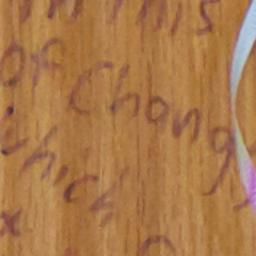 in this
of Chang
which